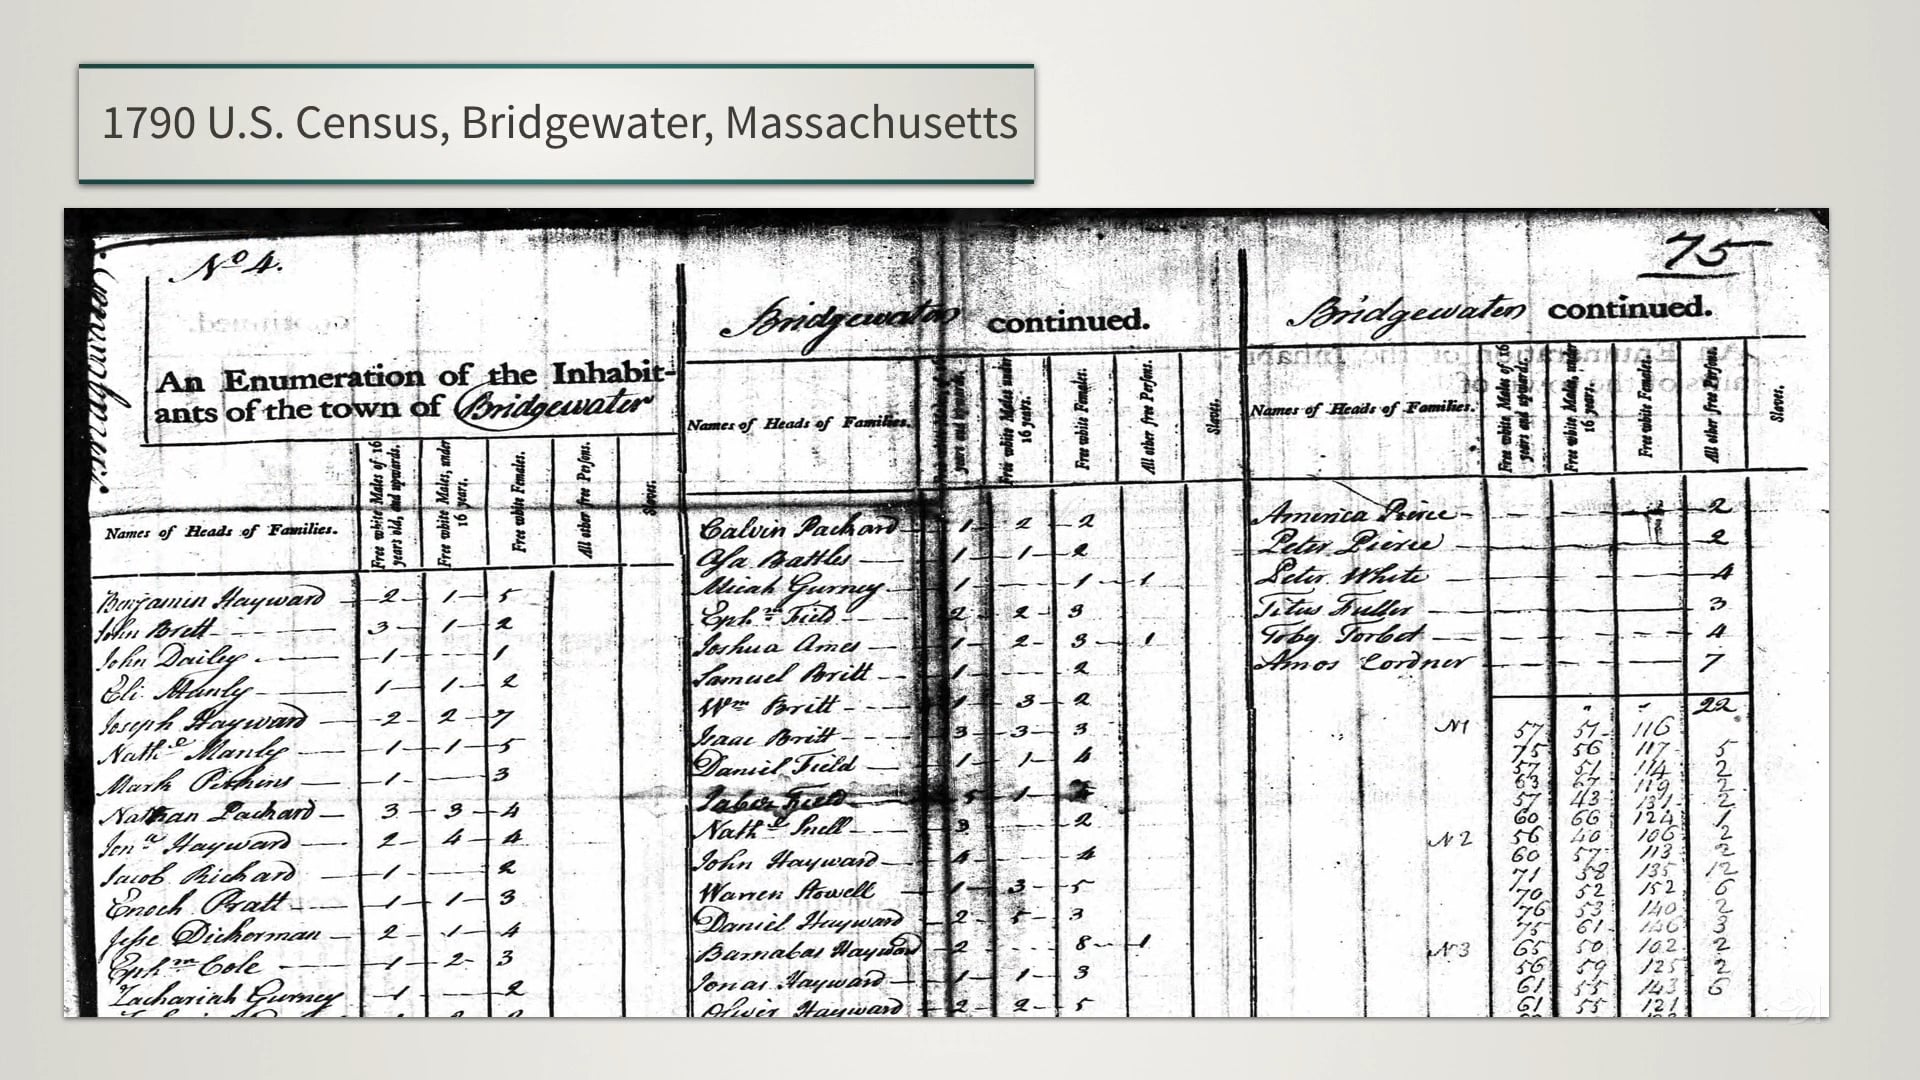 1790 U.S. Census, Bridgewater, Massachusetts
No 4.
75
Bridgewater
An Enumeration of the Inhabit-
ants of the town of Bridgewater
Names of Heads of Families.
Free white Males of 16 years old, and upwards.
Free white Males, under 16 years.
Free white Females.
All other free Persons.
Slaves.
Benjamin Hayward 2 1 5
John Brett 3 1 2
John Dailey 1 1
Eli Manly 1 1 2
Joseph Hayward 2 2 7
Nathl Manly 1 1 5
Mark Perkins 1 3
Nathan Packard 3 3 4
Jona Hayward 2 4 4
Jacob Richard 1 2
Enoch Pratt 1 1 3
Jesse Dickerman 2 1 4
Ephm Cole 1 2 3
Zachariah Gurney 1 2
Bridgewater continued.
Names of Heads of Families.
years and upwards.
Free white Males under 16 years.
Free white Females.
All other free Persons.
Slaves.
Calvin Packard 1 2 2
Asa Battles 1 1 2
Micah Gurney 1 1 1
Ephm Field 2 2 3
Joshua Ames 1 2 3 1
Samuel Britt 1 2
Wm Britt 1 3 2
Isaac Britt 3 3 3
Daniel Field 1 1 4
Jabez Field 5 1
Nathl Snell 3 2
John Hayward 4 4
Warren Howell 1 3 5
Daniel Hayward 2 5 3
Barnabas Hayward 2 8 1
Jonas Hayward 1 1 3
Oliver Hayward 2 2 5
Bridgewater continued.
Names of Heads of Families.
Free white Males of 16 years and upwards.
Free white Males, under 16 years.
Free white Females.
All other free Persons.
Slaves.
America Pierce 2
Peter Pierce 2
Peter White 4
Titus Fuller 3
Toby Torbet 4
Amos Cordner 7
22
No1 57 51 116
75 56 117 5
57 51 114 2
63 67 119 2
57 43 131 2
60 66 124 1
No2 56 40 106 2
60 57 113 2
71 58 135 12
70 52 152 6
76 53 140 2
75 61 146 3
No3 65 50 102 2
56 59 125 2
61 55 143 6
61 55 121